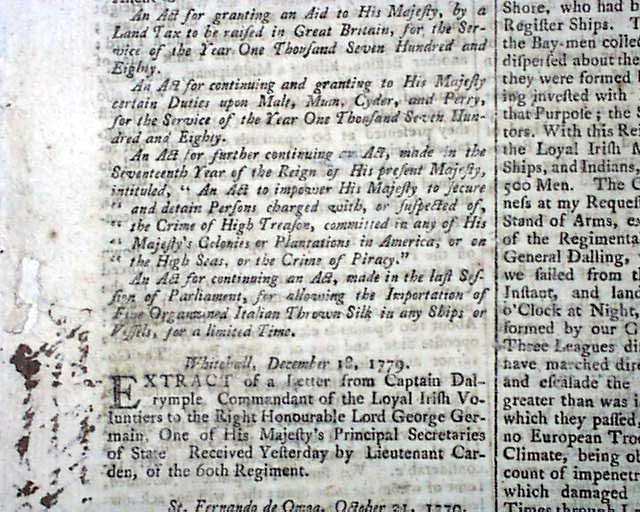 An Act for granting an Aid to His Majesty, by a
Land Tax to be raised in Great Britain, for the Ser-
vice of the Year One Thousand Seven Hundred and
Eighty.
An Act for continuing and granting to His Majesty
certain Duties upon Malt, Mum, Cyder, and Perry,
for the Service of the Year One Thousand Seven Hun-
dred and Eighty.
An Act for further continuing an Act, made in the
Seventeenth Year of the Reign of His present Majesty,
intituled, " An Act to impower His Majesty to secure
" and detain Persons charged with, or suspected of,
" the Crime of High Treason, committed in any of His
" Majesty's Colonies or Plantations in America, or on
" the High Seas, or the Crime of Piracy."
An Act for continuing an Act, made in the last Ses-
sion of Parliament, for allowing the Importation of
Fine Organzined Italian Thrown Silk in any Ships or
Vessels, for a limited Time.
Whitehall, December 18, 1779.
EXTRACT of a Letter from Captain Dal-
rymple, Commandant of the Loyal Irish Vo-
luntiers to the Right Honourable Lord George Ger-
main, One of His Majesty's Principal Secretaries
of State Received Yesterday by Lieutenant Car-
den, of the 60th Regiment.
St. Fernando de Omoa, October 21, 1779.
Shore, who had b
Register Ships.
the Bay-men collec
dispersed about the
they were formed
ing invested with
that Purpose; the S
tors. With this Rei
the Loyal Irish
Ships, and Indians,
500 Men. The
ness at my Reques
Stand of Arms, ex
of the Regimenta
General Dalling,
we sailed from th
Instant, and land
o'Clock at Night,
formed by our
Three Leagues dis
have marched dire
and escalade the
greater than was i
which they passed,
no European Troo
Climate, being ob
count of impenetr
which damaged
Times through L